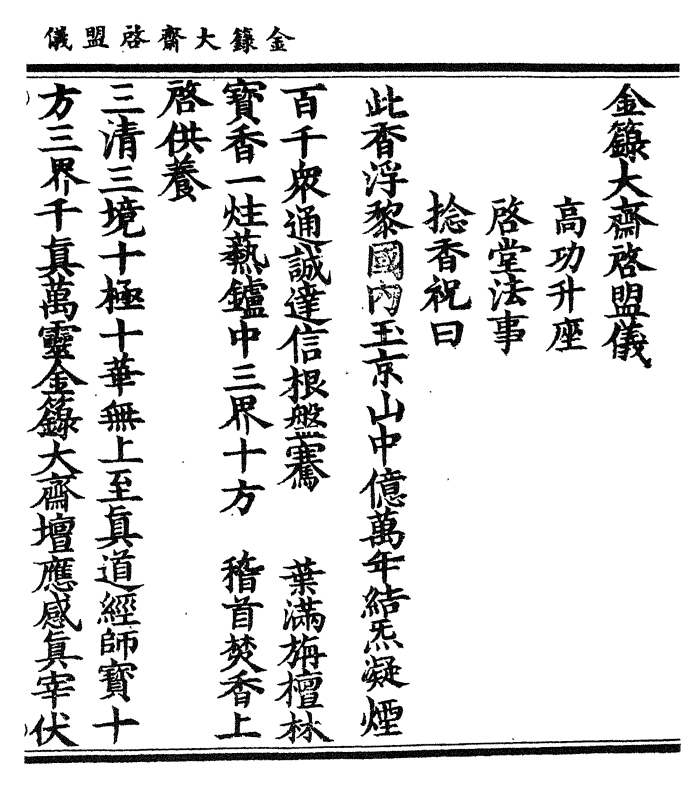 金籙大齋啓盟儀
金籙大齋啓盟儀
高功升座
啓堂法事
捻香祝曰
此香浮黎國內玉京山中億萬年結炁凝煙
百千衆通誠達信根盤騫 葉滿旃檀林
寶香一炷爇鑪中三界十方 稽首焚香上
啓供養
三清三境十極十華無上至眞道經師寶十
方三界千眞萬靈金籙大齋壇應感眞宰伏